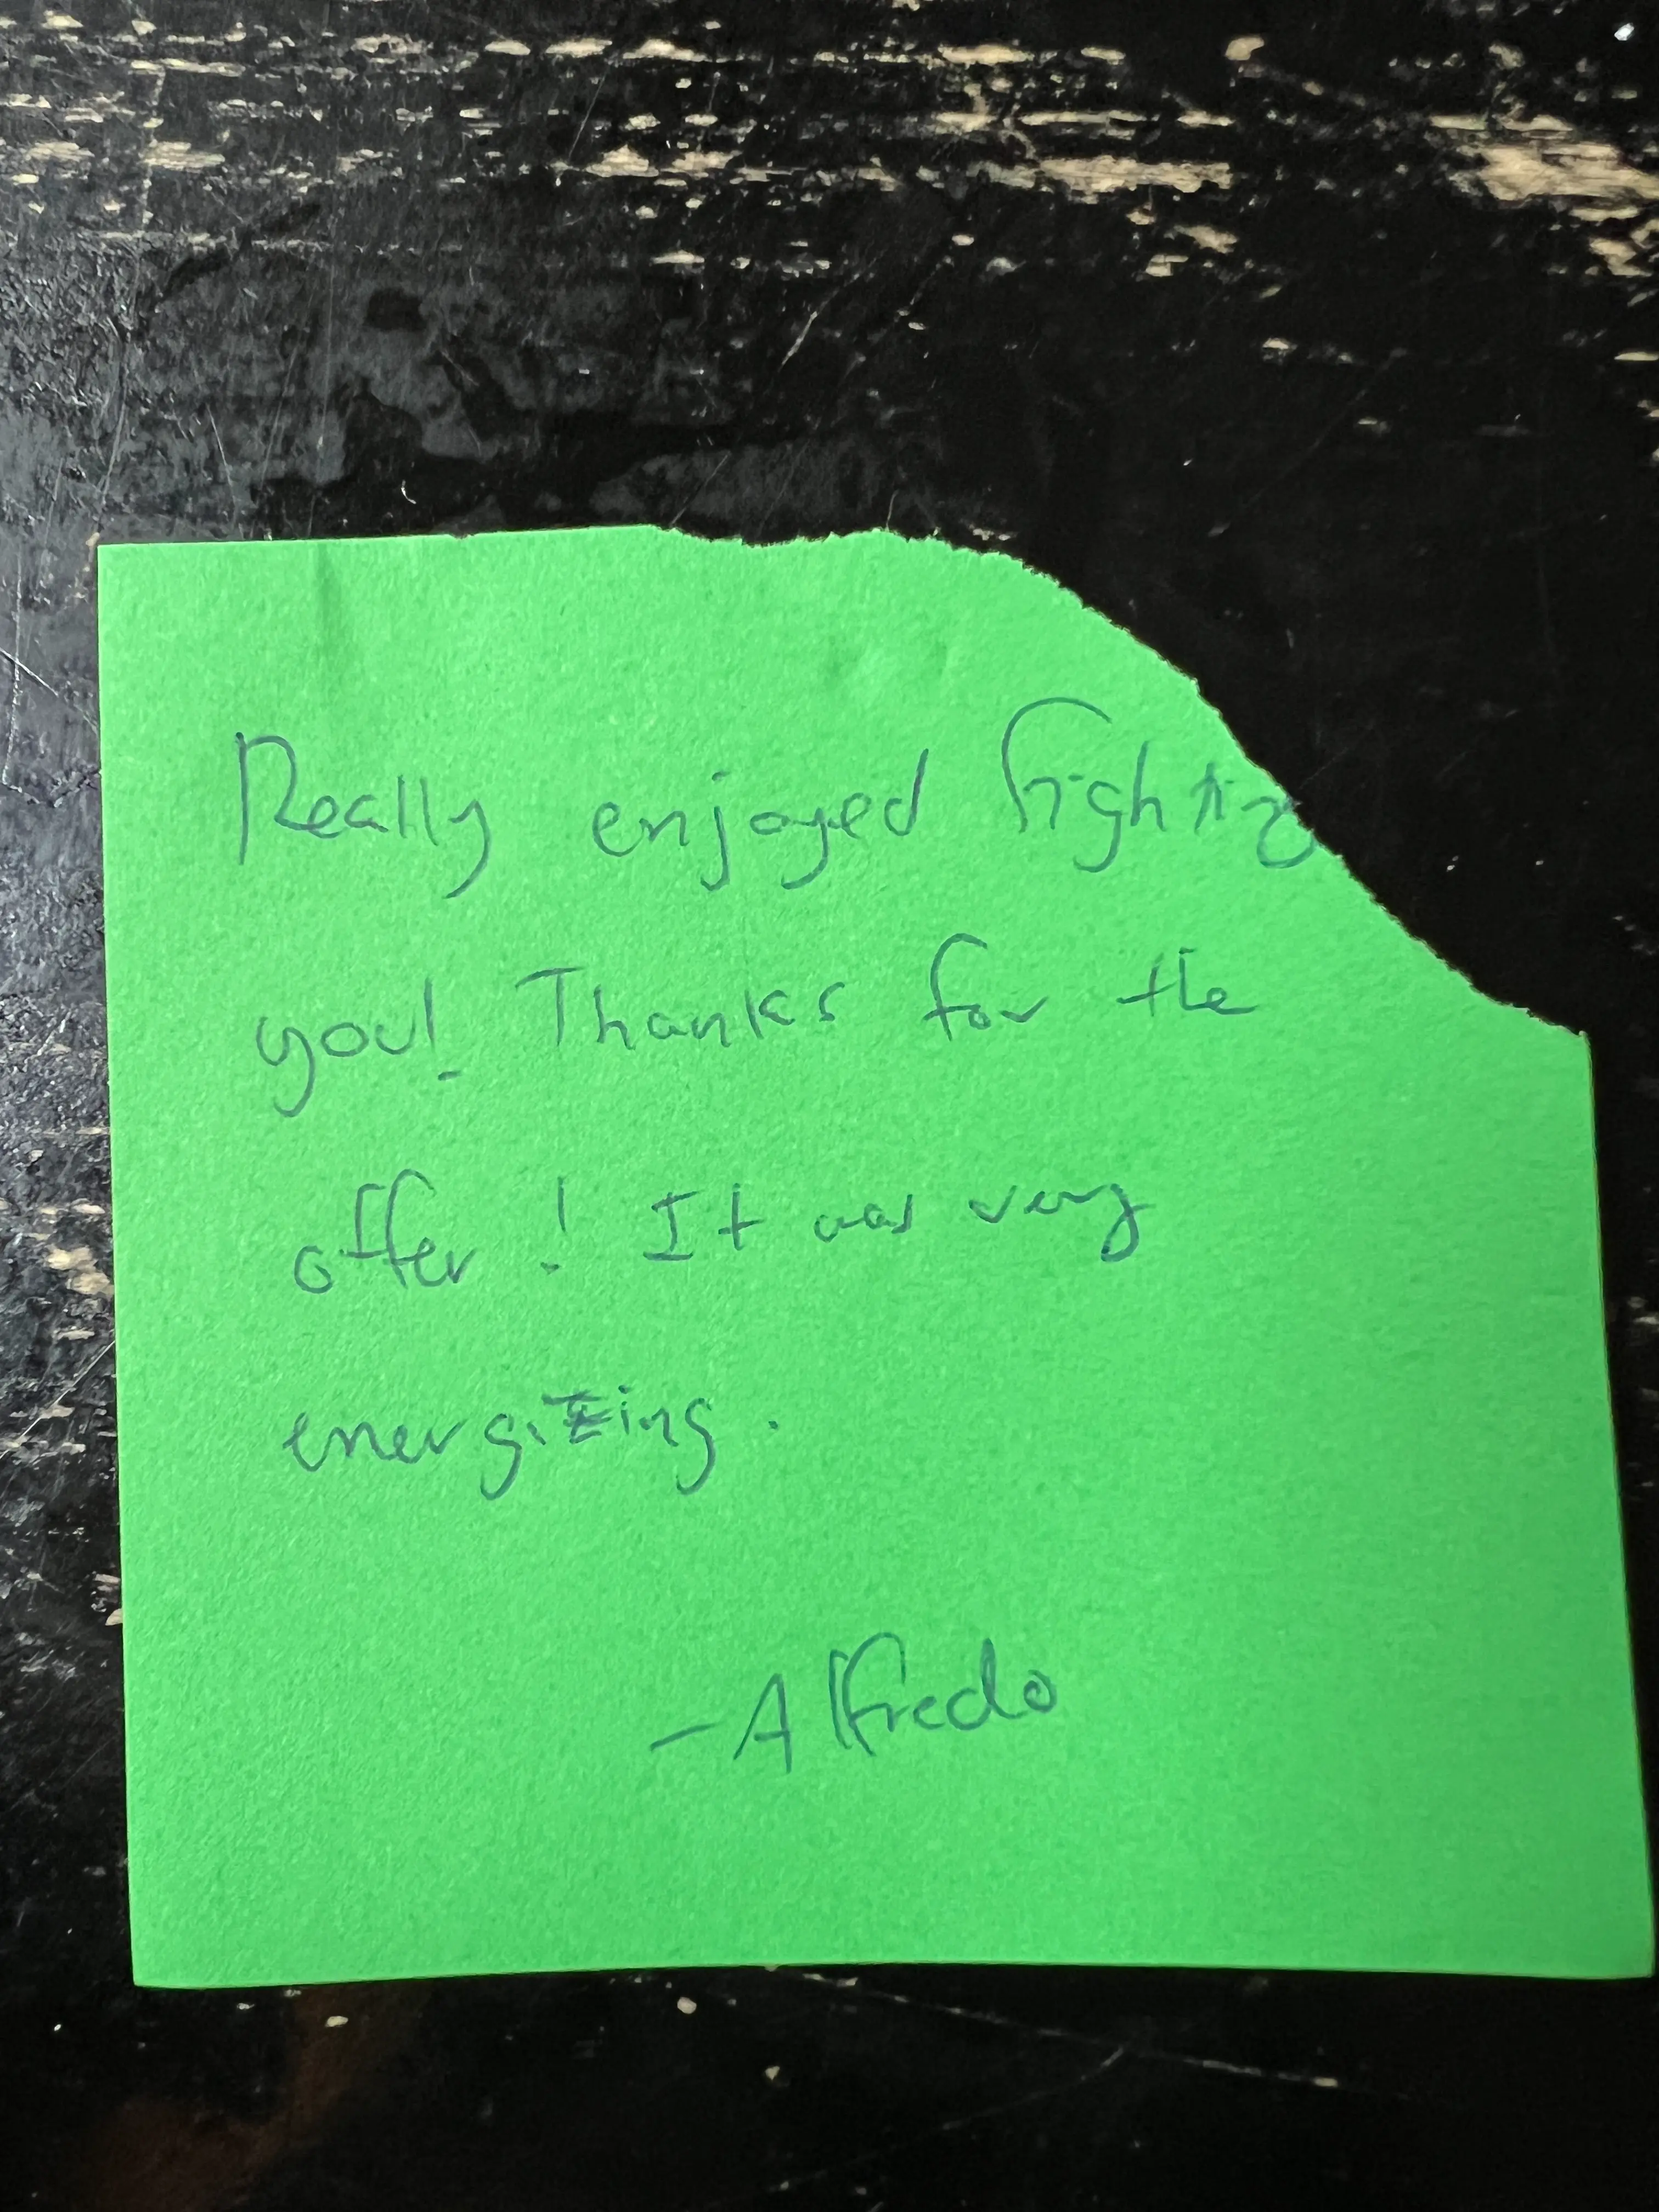 Really enjoyed fighting
you! Thanks for the
offer! It was very
energizing.
-Alfredo